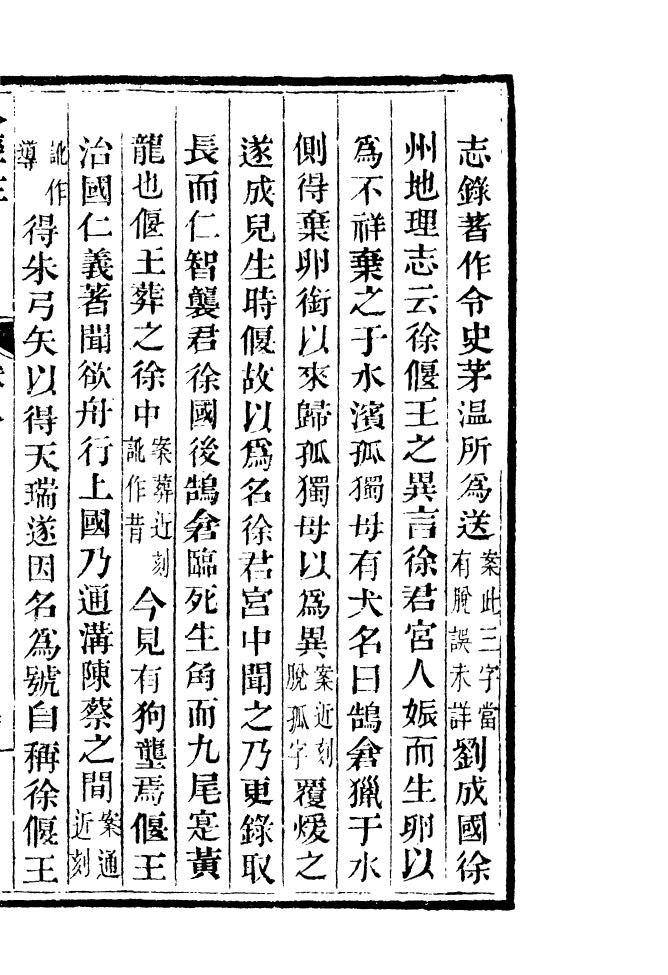 志錄著作令史茅温所爲送案此三字當有脫誤未詳劉成國徐
州地理志云徐偃王之異言徐君宮人娠而生卵以
爲不祥棄之于水濱孤獨母有犬名曰鵠倉獵于水
側得棄卵銜以來歸孤獨母以爲異案近刻脫孤字覆煖之
遂成兒生時偃故以爲名徐君宮中聞之乃更錄取
長而仁智襲君徐國後鵠倉臨死生角而九尾寔黄
龍也偃王葬之徐中案葬近刻訛作昔今見有狗壟焉偃王
治國仁義著聞欲舟行上國乃通溝陳蔡之間案通近刻
訛作導得朱弓矢以得天瑞遂因名爲號自稱徐偃王